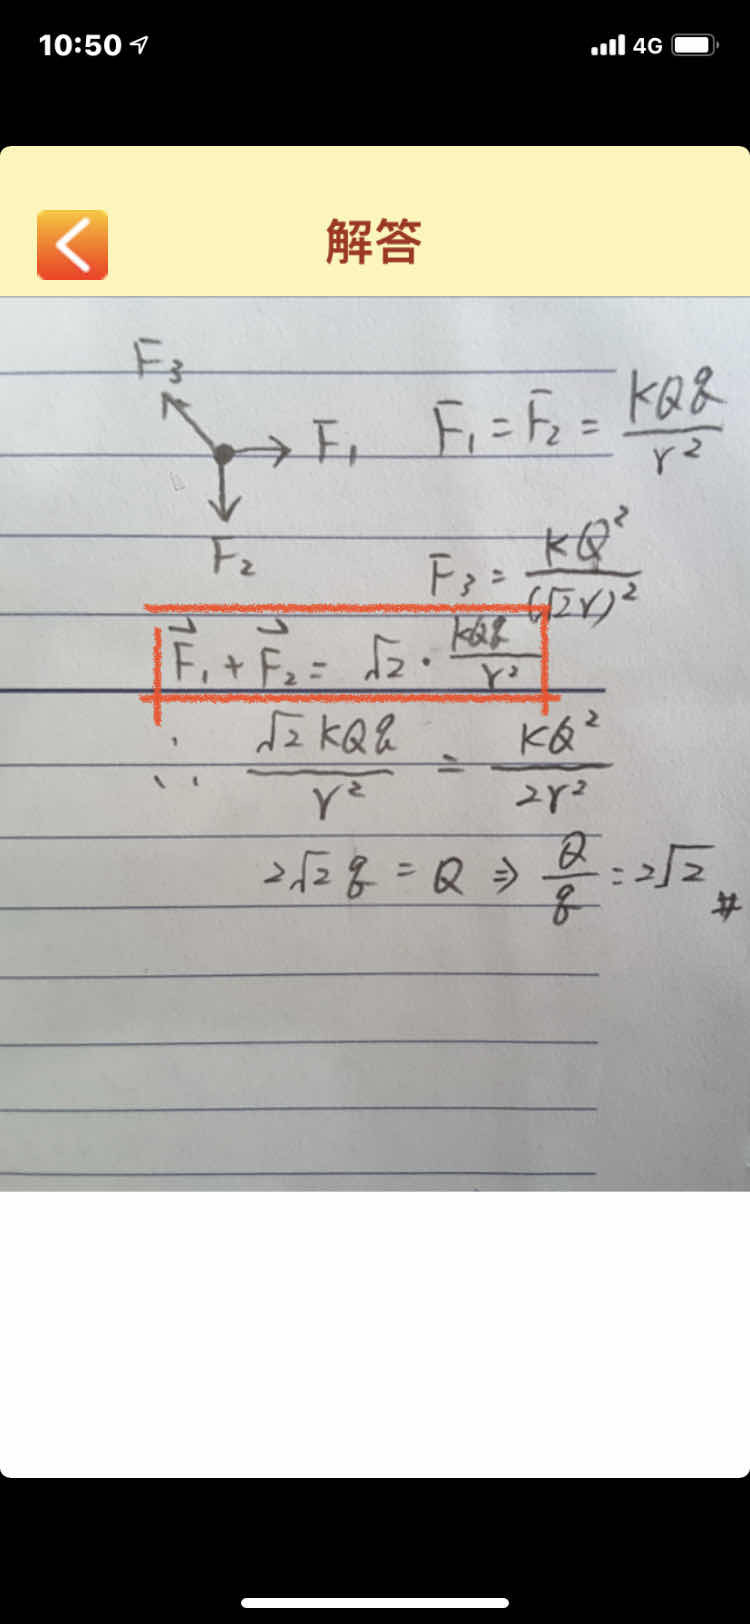 10:50 4G
解答
F₃
F₁
F₂
F₁ = F₂ = kQq/r²
F₃ = kQ²/(√2r)²
F₁⃗ + F₂⃗ = √2 · kQq/r²
∵ √2kQq/r² = kQ²/2r²
2√2 q = Q ⇒ Q/q = 2√2 #